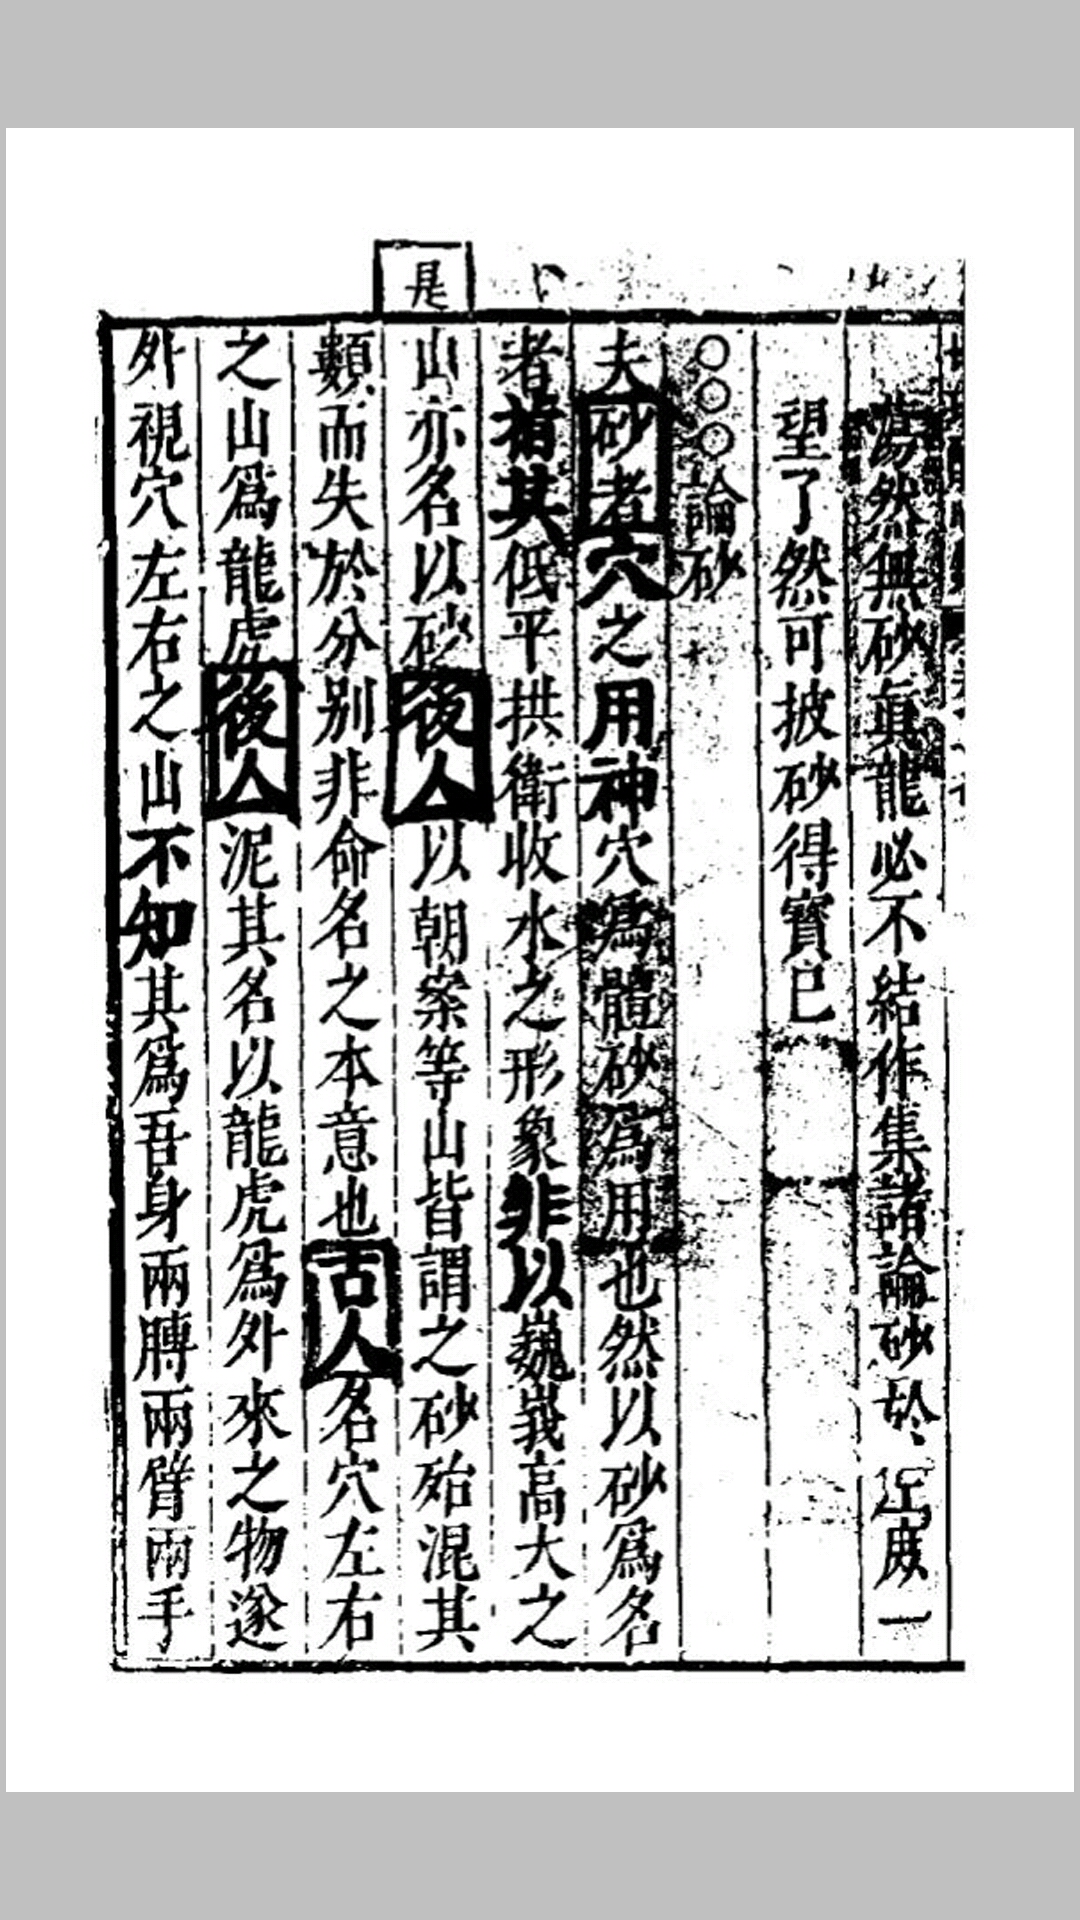 蕩然無砂真龍必不結作集諸論砂於左庶一
望了然可披砂得寶已
○○○論砂
夫砂者穴之用神穴爲體砂爲用也然以砂爲名
者指其低平拱衛收水之形象非以巍峩高大之
是
山亦名以砂後人以朝案等山皆謂之砂殆混其
類而失於分別非命名之本意也古人名穴左右
之山爲龍虎後人泥其名以龍虎爲外來之物遂
外視穴左右之山不知其爲吾身兩膊兩臂兩手